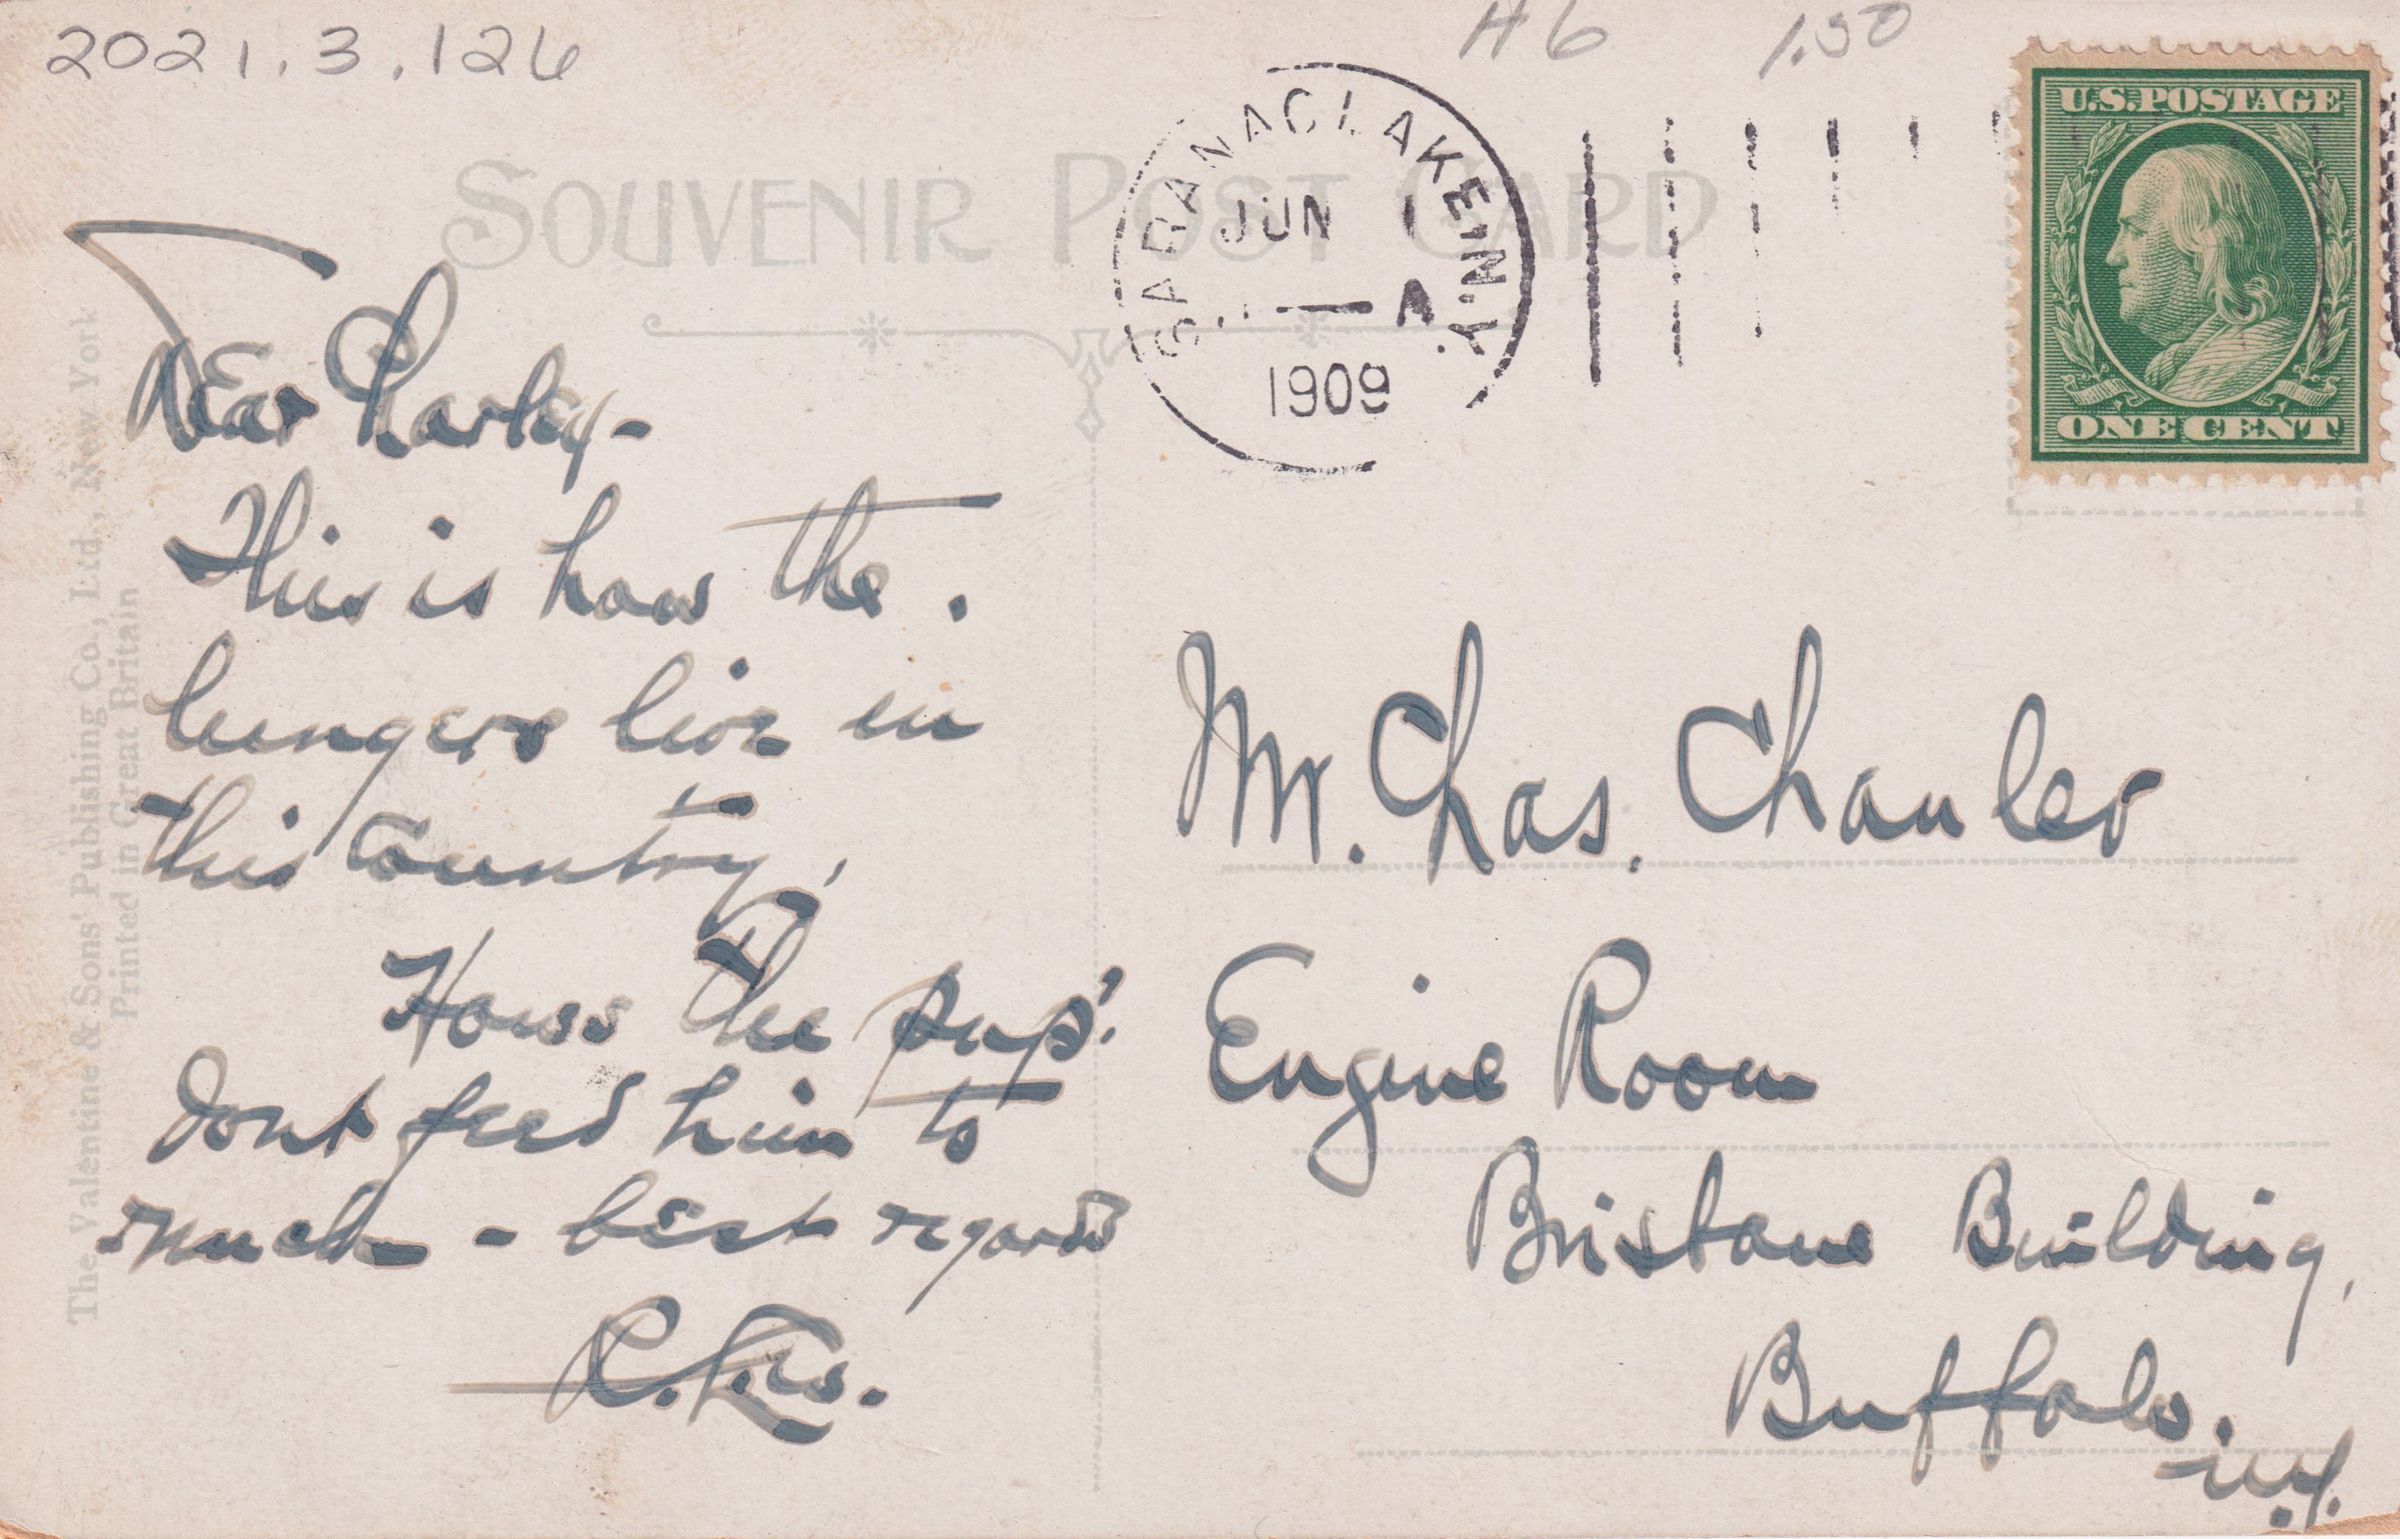 2021.3.126
H6 1.50
U.S. POSTAGE
ONE CENT
SOUVENIR POST CARD
SARANAC LAKE, N.Y.
JUN 1
A
1909
Dear Charley-
This is how the
lungers live in
this country,
Hows the pup?
Dont feed him to
much - best regards
Mr. Chas. Chanler
Engine Room
Brisbane Building,
Buffalo.
N.Y.
The Valentine & Sons' Publishing Co., Ltd., New York
Printed in Great Britain